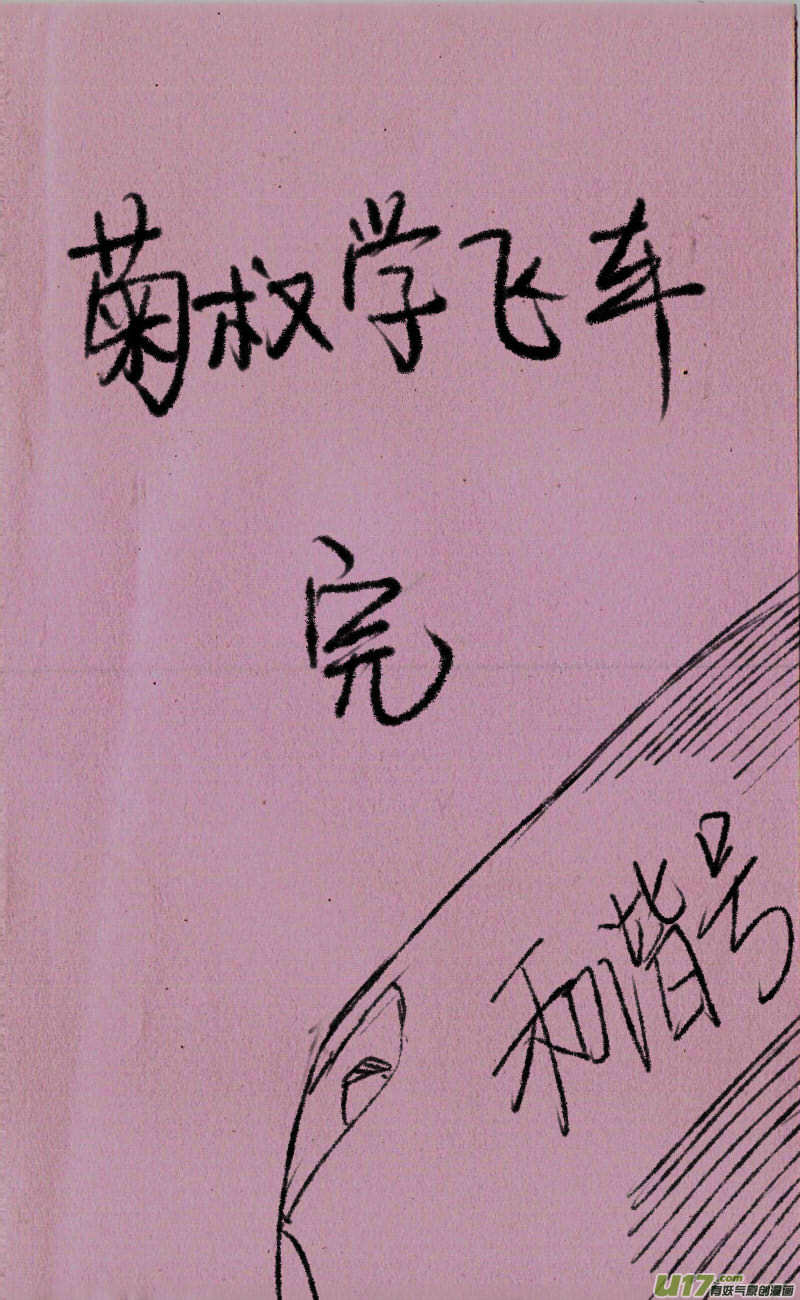 菊叔学飞车
完
和谐号
U17.com
有妖气原创漫画